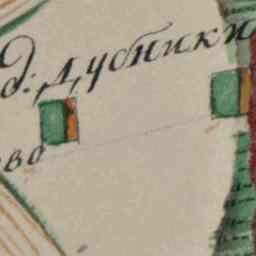 д: Дубники
во